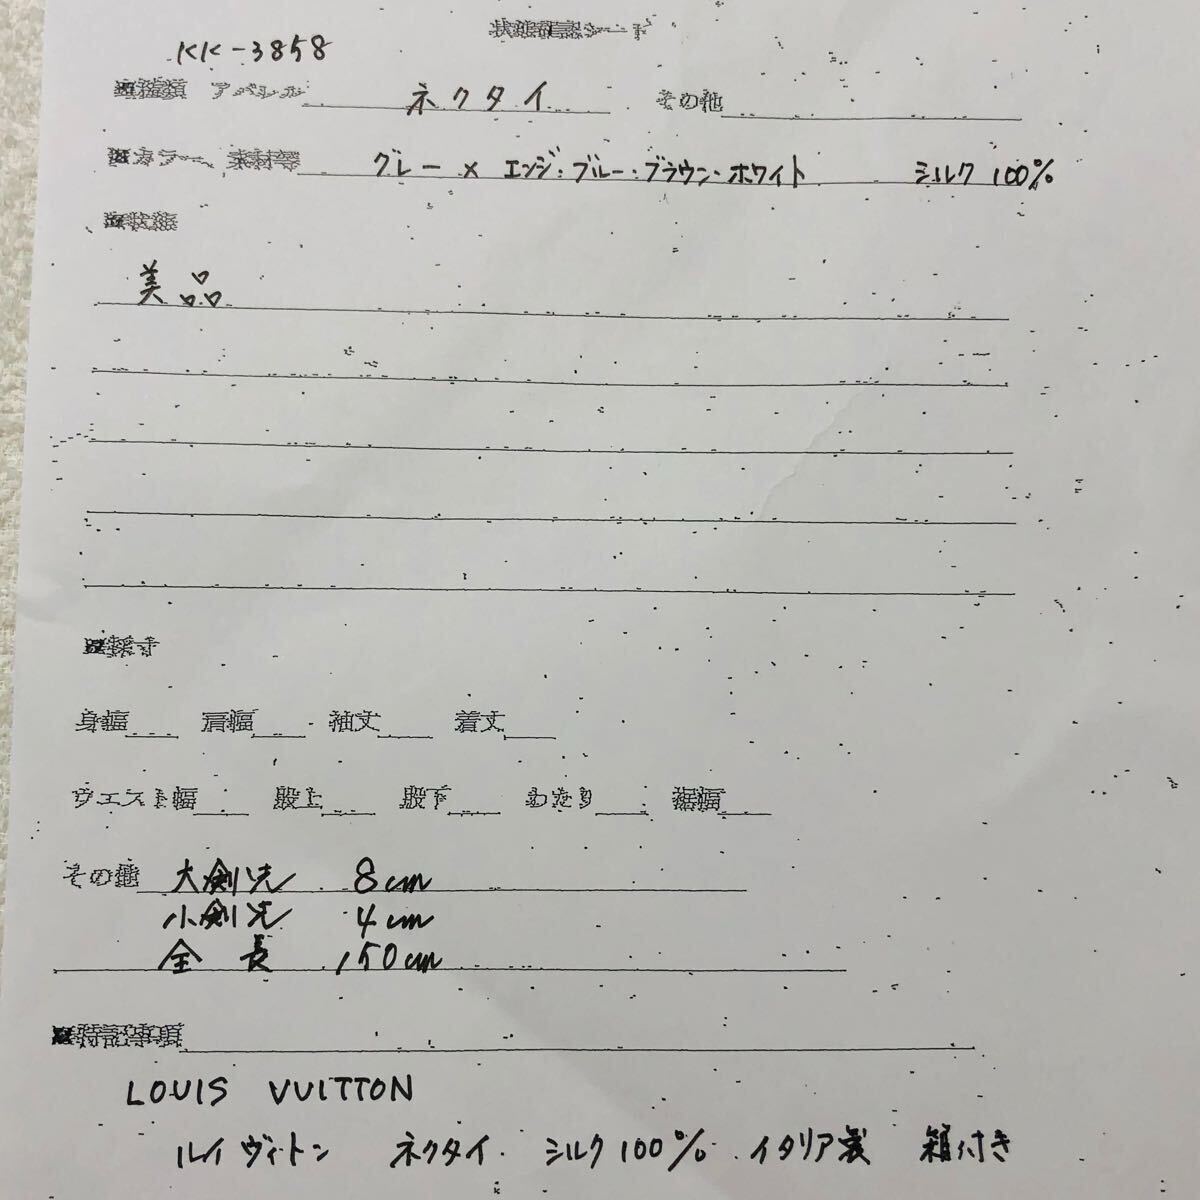 状態確認シート
KK-3858
■種類 アパレル ネクタイ その他
■カラー、素材等 グレー × エンジ・ブルー・ブラウン・ホワイト シルク 100%
■状態
美品
■採寸
身幅 肩幅 袖丈 着丈
ウエスト幅 股上 股下 わたり 裾幅
その他 大剣先 8cm
小剣先 4cm
全長 150cm
■特記事項
LOUIS VUITTON
ルイヴィトン ネクタイ シルク100% イタリア製 箱付き